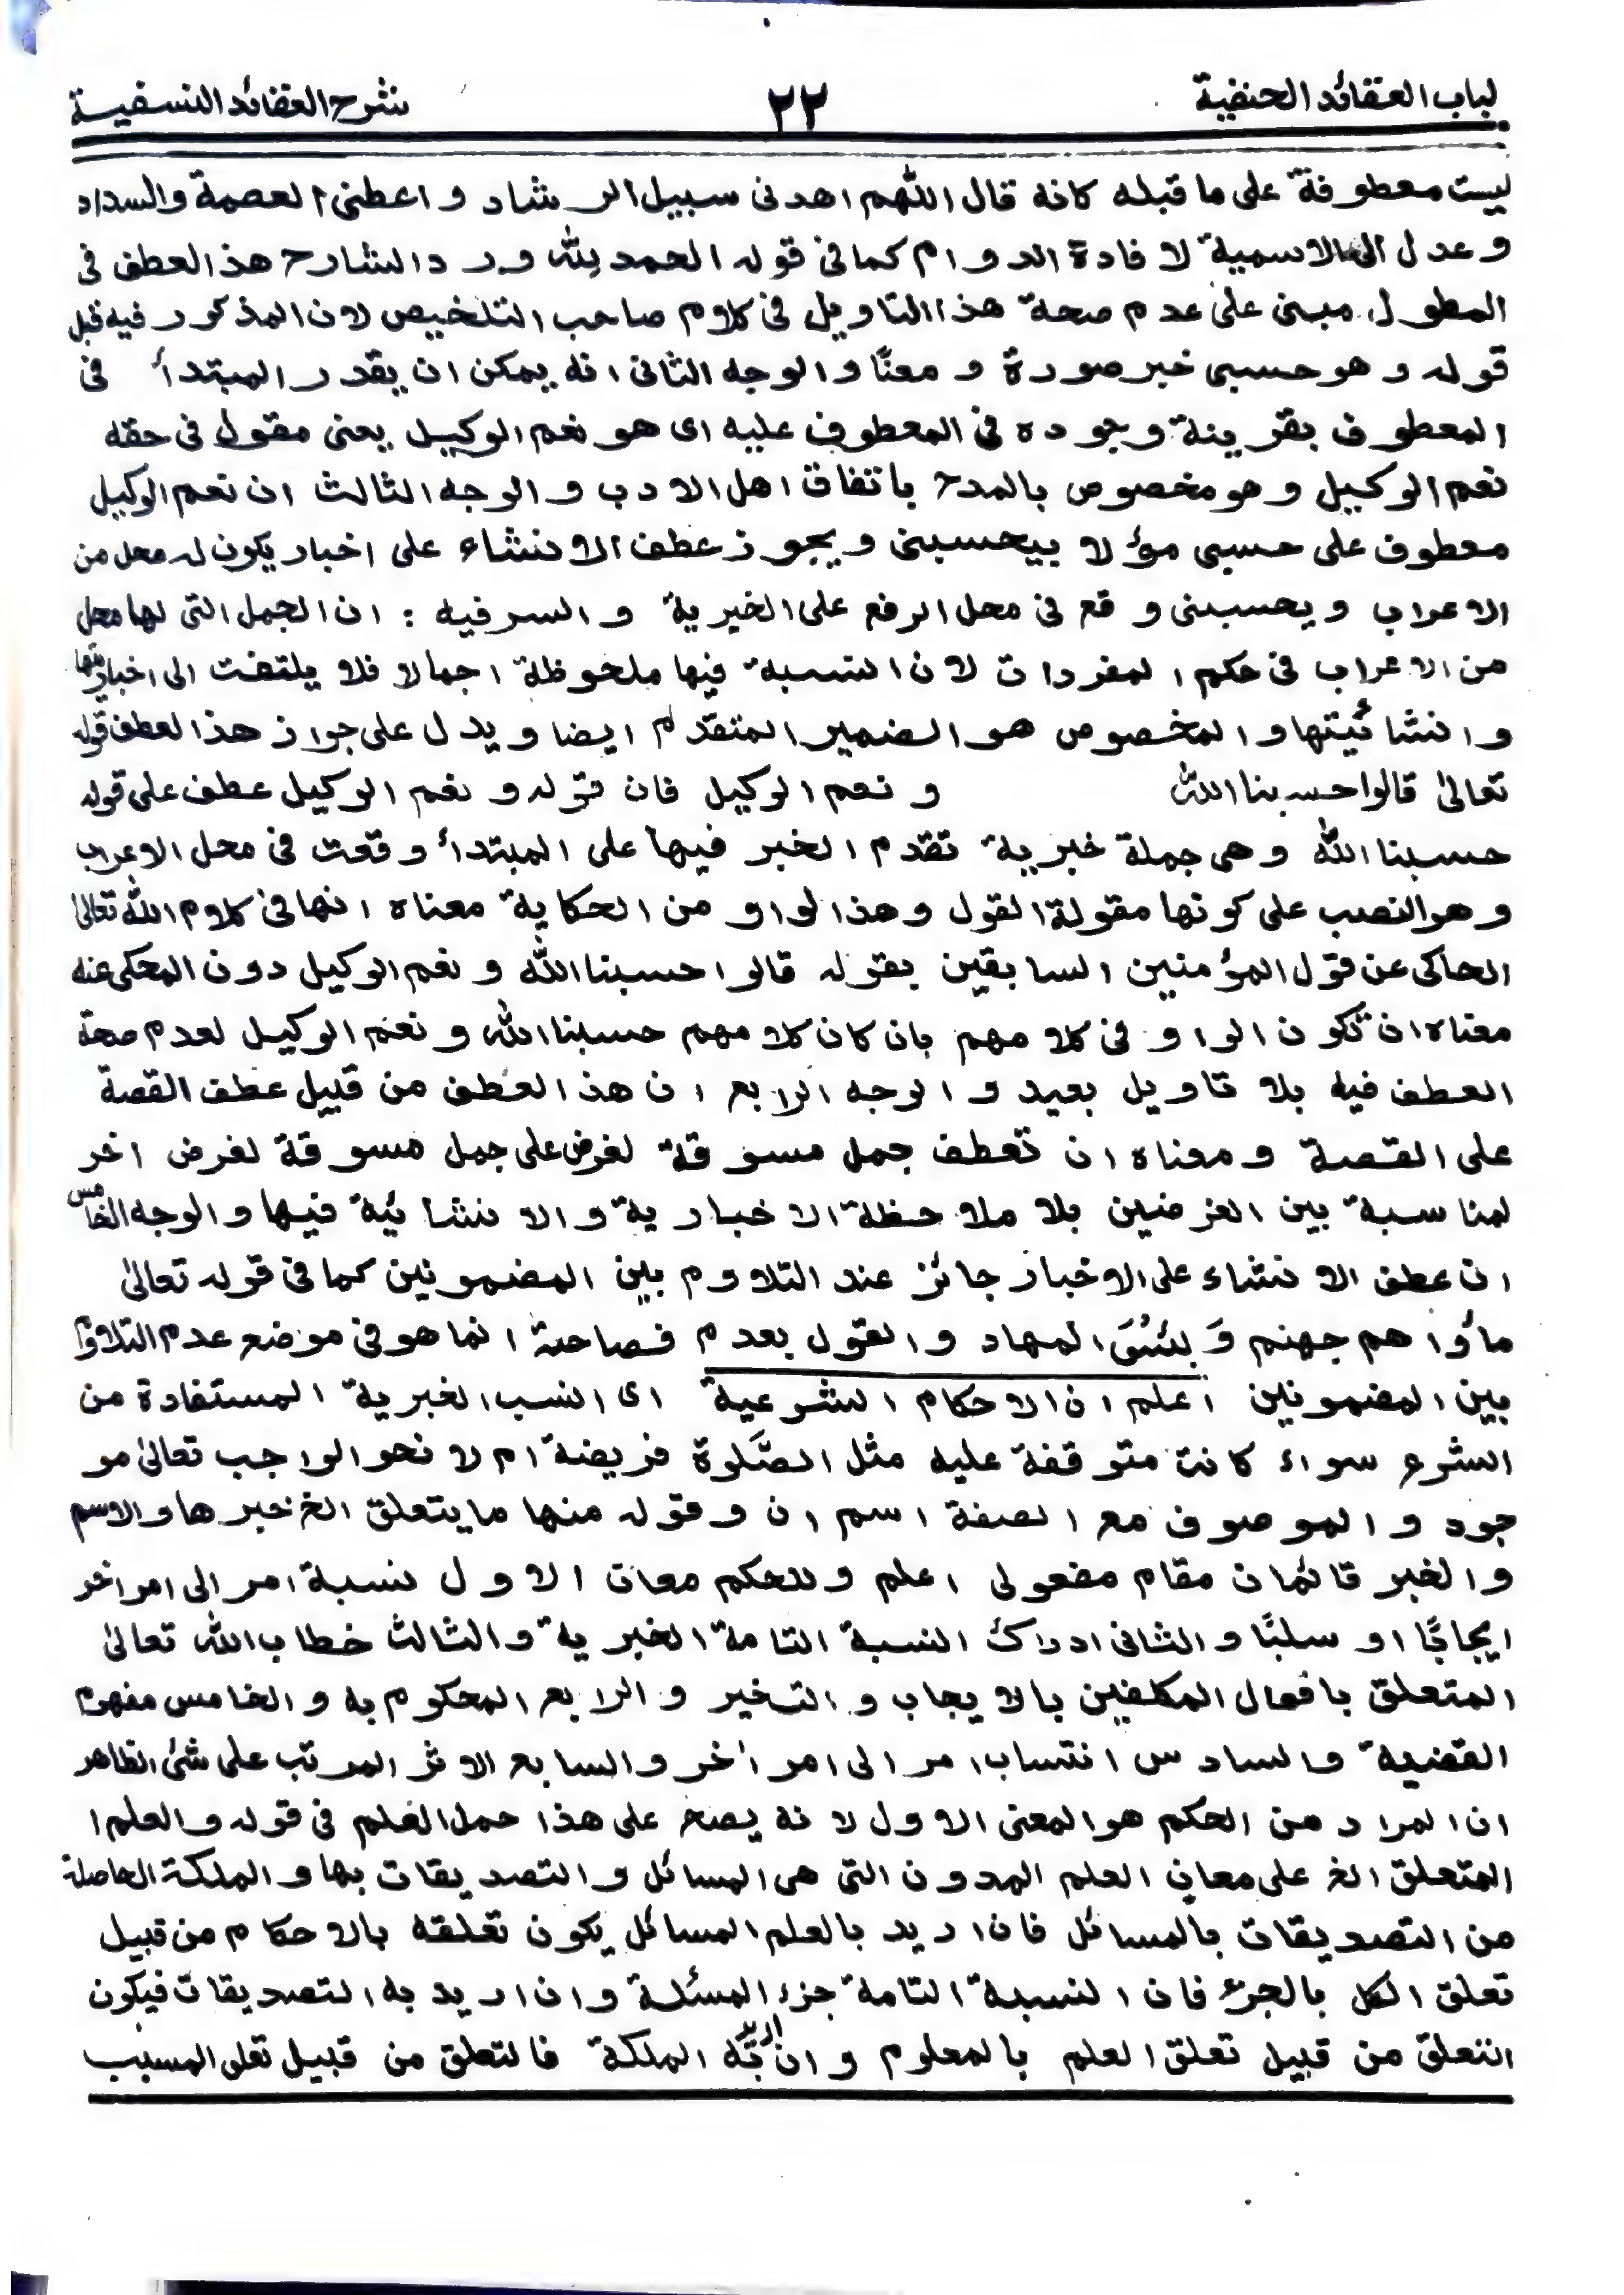 لباب العقائد الحنفية ٢٢ شرح العقائد النسفية
ليست معطوفة على ما قبله كانه قال اللهم اهدنى سبيل الرشاد واعطنى العصمة والسداد
وعدل الى الاسمية لافادة الدوام كما فى قوله الحمد لله ورد الشارح هذا العطف فى
المطول مبنى على عدم صحة هذا التاويل فى كلام صاحب التلخيص لان المذكور فيه قبل
قوله وهو حسبى خبر صورة ومعنًا والوجه الثانى انه يمكن ان يقدر المبتدأ فى
المعطوف بقرينة وجوده فى المعطوف عليه اى هو نعم الوكيل يعنى مقول فى حقه
نعم الوكيل وهو مخصوص بالمدح باتفاق اهل الادب والوجه الثالث ان نعم الوكيل
معطوف على حسبى مؤلا بيحسبنى ويجوز عطف الانشاء على اخبار يكون له محل من
الاعراب ويحسبنى وقع فى محل الرفع على الخبرية والسر فيه : ان الجمل التى لها محل
من الاعراب فى حكم المفردات لان النسبة فيها ملحوظة اجمالا فلا يلتفت الى اخباريتها
وانشائيتها والمخصوص هو الضمير المتقدم ايضا ويدل على جواز هذا العطف قوله
تعالىٰ قالوا حسبنا الله ونعم الوكيل فان قوله ونعم الوكيل عطف على قوله
حسبنا الله وهى جملة خبرية تقدم الخبر فيها على المبتدأ وقعت فى محل الاعراب
وهو النصب على كونها مقولة القول وهذا لواو من الحكاية معناه انها فى كلام الله تعالىٰ
الحاكى عن قول المؤمنين السابقين بقوله قالوا حسبنا الله ونعم الوكيل دون المحكى عنه
معناه ان تكون الواو فى كلامهم بان كان كلامهم حسبنا الله ونعم الوكيل لعدم صحة
العطف فيه بلا تاويل بعيد والوجه الرابع ان هذا العطف من قبيل عطف القصة
على القصة ومعناه ان تعطف جمل مسوقة لغرض على جمل مسوقة لغرض اخر
لمناسبة بين الغرضين بلا ملاحظة الاخبارية والانشائية فيها والوجه الخامس
ان عطف الانشاء على الاخبار جائز عند التلازم بين المضمونين كما فى قوله تعالىٰ
مأواهم جهنم وَبئسَ المهاد والقول بعدم فصاحته انما هو فى موضع عدم التلازم
بين المضمونين اعلم ان الاحكام الشرعية اى النسب الخبرية المستفادة من
الشرع سواء كانت متوقفة عليه مثل الصَّلوة فريضة ام لا نحو الواجب تعالىٰ مو
جود والموصوف مع الصفة اسم ان وقوله منها ما يتعلق الخ خبرها والاسم
والخبر قائمان مقام مفعولى اعلم وللحكم معان الاول نسبة امر الى امر اخر
ايجابًا او سلبًا والثانى ادراك النسبة التامة الخبرية والثالث خطاب الله تعالىٰ
المتعلق بافعال المكلفين بالايجاب والتخير والرابع المحكوم به والخامس مفهوم
القضية والسادس انتساب امر الى امر اٰخر والسابع الاثر المرتب على شئ الظاهر
ان المراد من الحكم هو المعنى الاول لانه يصح على هذا حمل العلم فى قوله والعلم ا
المتعلق الخ على معان العلم المدون التى هى المسائل والتصديقات بها والملكة الحاصلة
من التصديقات بالمسائل فان اريد بالعلم المسائل يكون تعلقه بالاحكام من قبيل
تعلق الكل بالجزء فان النسبة التامة جزء المسئلة وان اريد به التصديقات فيكون
التعلق من قبيل تعلق العلم بالمعلوم وان اريد به الملكة فالتعلق من قبيل تعلق المسبب